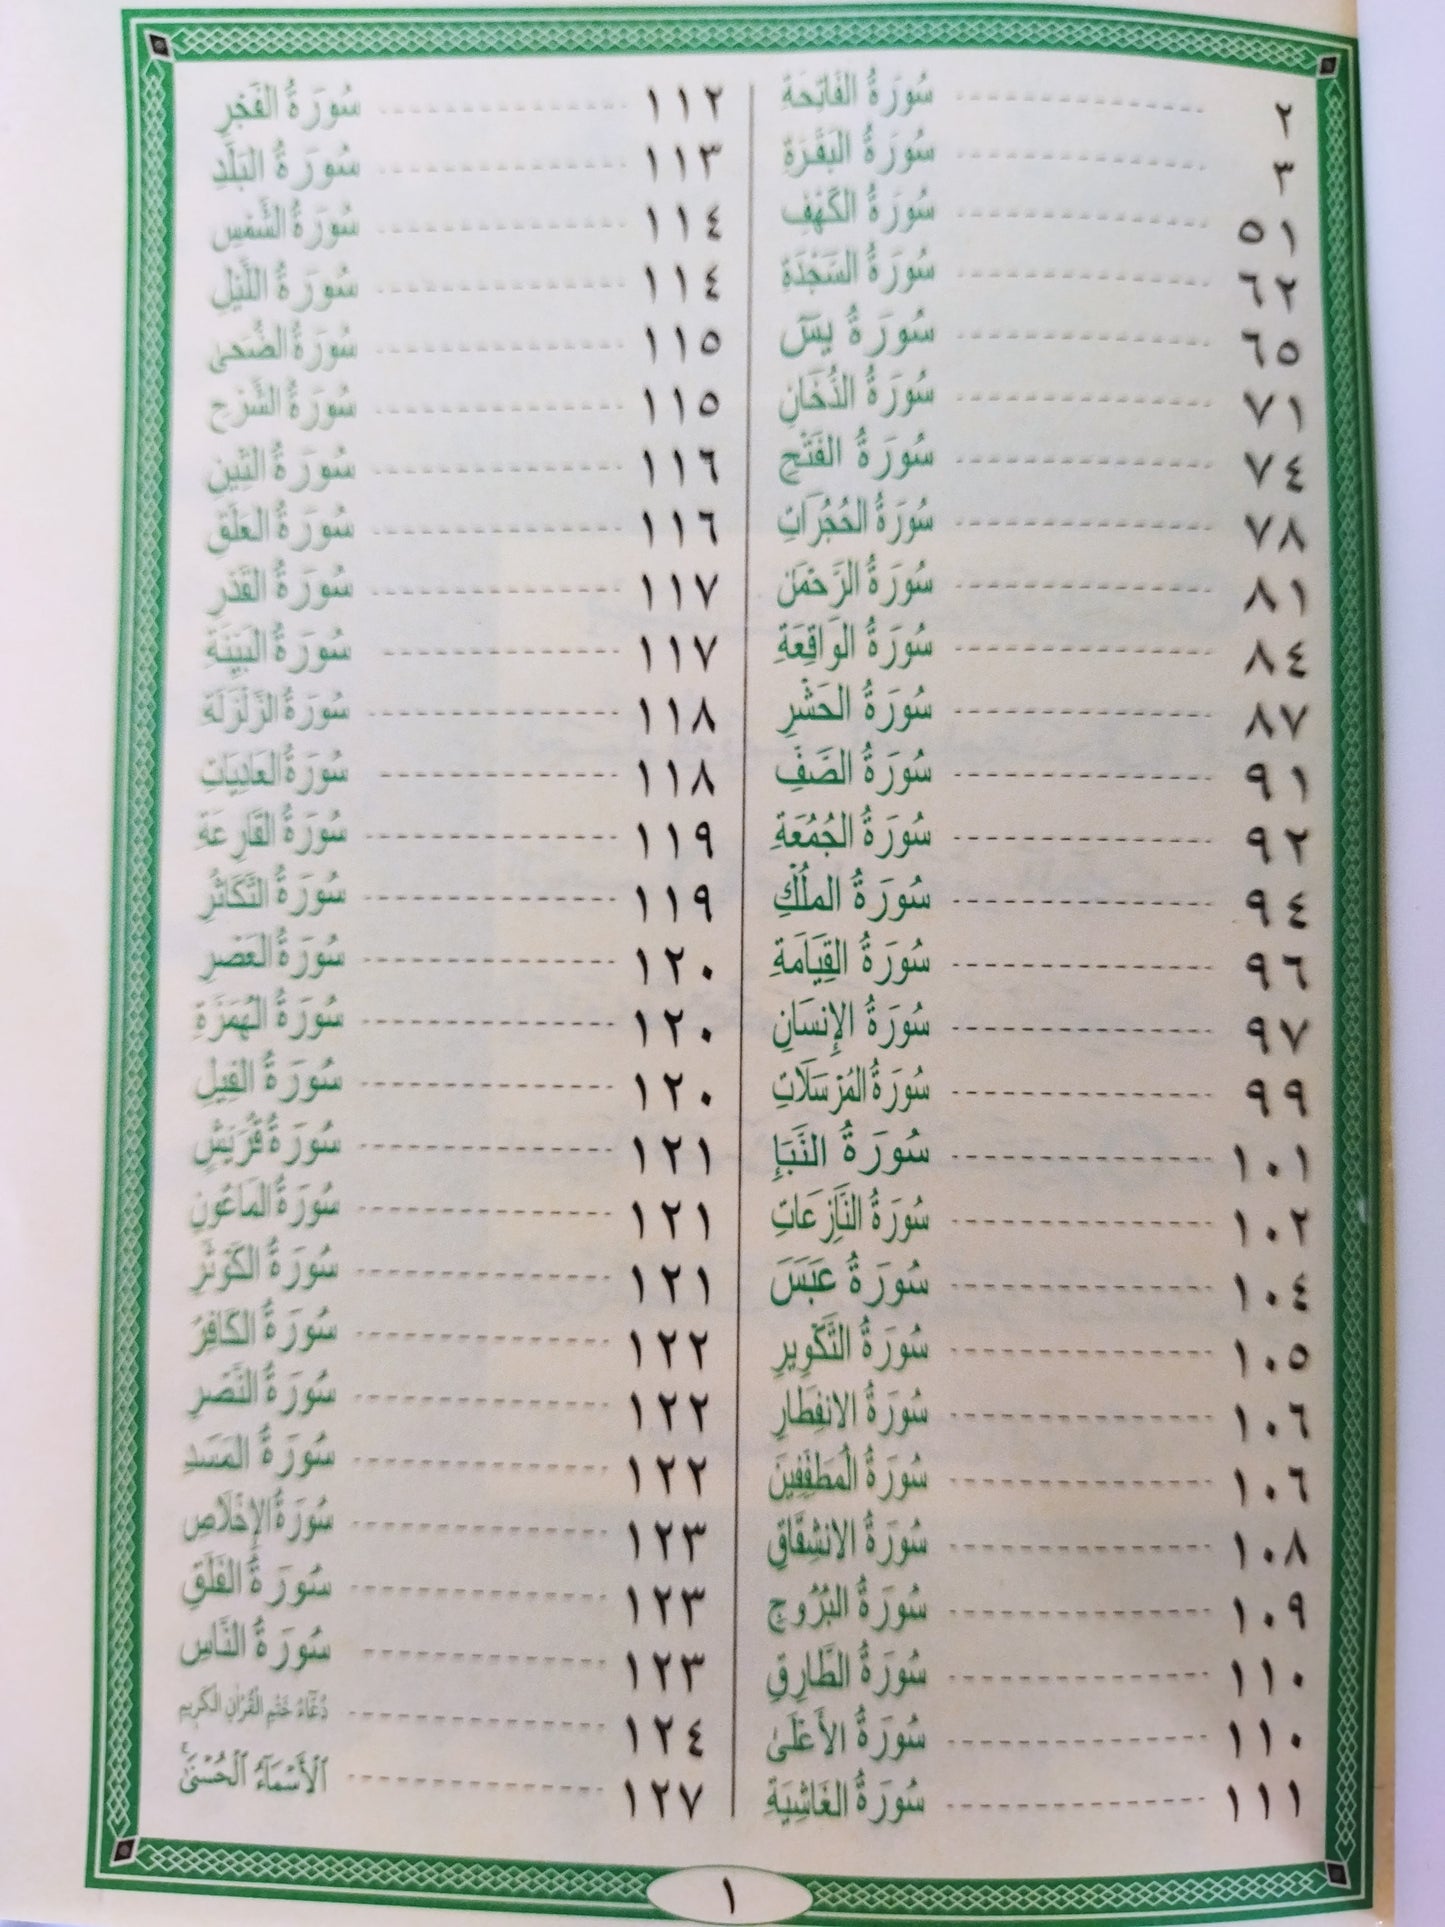 سُورَةُ الفَاتِحَةِ ٢
سُورَةُ البَقَرَةِ ٣
سُورَةُ الكَهْفِ ٥١
سُورَةُ السَجْدَةِ ٦٢
سُورَةُ يسٓ ٦٥
سُورَةُ الدُخَانِ ٧١
سُورَةُ الفَتْحِ ٧٤
سُورَةُ الحُجُرَاتِ ٧٨
سُورَةُ الرَّحْمَن ٨١
سُورَةُ الوَاقِعَةِ ٨٤
سُورَةُ الحَشْرِ ٨٧
سُورَةُ الصَّفِّ ٩١
سُورَةُ الجُمُعَةِ ٩٢
سُورَةُ المُلْكِ ٩٤
سُورَةُ القِيَامَةِ ٩٦
سُورَةُ الإِنسَانِ ٩٧
سُورَةُ المُرْسَلَاتِ ٩٩
سُورَةُ النَّبَإِ ١٠١
سُورَةُ النَّازِعَاتِ ١٠٢
سُورَةُ عَبَسَ ١٠٤
سُورَةُ التَّكْوِيرِ ١٠٥
سُورَةُ الانفِطَارِ ١٠٦
سُورَةُ المُطَفِّفِينَ ١٠٦
سُورَةُ الانشِقَاقِ ١٠٨
سُورَةُ البُرُوجِ ١٠٩
سُورَةُ الطَّارِقِ ١١٠
سُورَةُ الأَعْلَىٰ ١١٠
سُورَةُ الغَاشِيَةِ ١١١
سُورَةُ الفَجْرِ ١١٢
سُورَةُ البَلَدِ ١١٣
سُورَةُ الشَّمْسِ ١١٤
سُورَةُ اللَّيْلِ ١١٤
سُورَةُ الضُّحَىٰ ١١٥
سُورَةُ الشَّرْحِ ١١٥
سُورَةُ التِّينِ ١١٦
سُورَةُ العَلَقِ ١١٦
سُورَةُ القَدْرِ ١١٧
سُورَةُ البَيِّنَةِ ١١٧
سُورَةُ الزَّلْزَلَةِ ١١٨
سُورَةُ العَادِيَاتِ ١١٨
سُورَةُ القَارِعَةِ ١١٩
سُورَةُ التَّكَاثُرِ ١١٩
سُورَةُ العَصْرِ ١٢٠
سُورَةُ الهُمَزَةِ ١٢٠
سُورَةُ الفِيلِ ١٢٠
سُورَةُ قُرَيْشٍ ١٢١
سُورَةُ المَاعُونِ ١٢١
سُورَةُ الكَوْثَرِ ١٢١
سُورَةُ الكَافِرُ ١٢٢
سُورَةُ النَّصْرِ ١٢٢
سُورَةُ المَسَدِ ١٢٢
سُورَةُ الإِخْلَاصِ ١٢٣
سُورَةُ الفَلَقِ ١٢٣
سُورَةُ النَّاسِ ١٢٣
دُعَاءُ خَتْمِ القُرْآنِ الكَرِيمِ ١٢٤
ٱلْأَسْمَاءُ ٱلْحُسْنَىٰ ١٢٧
١